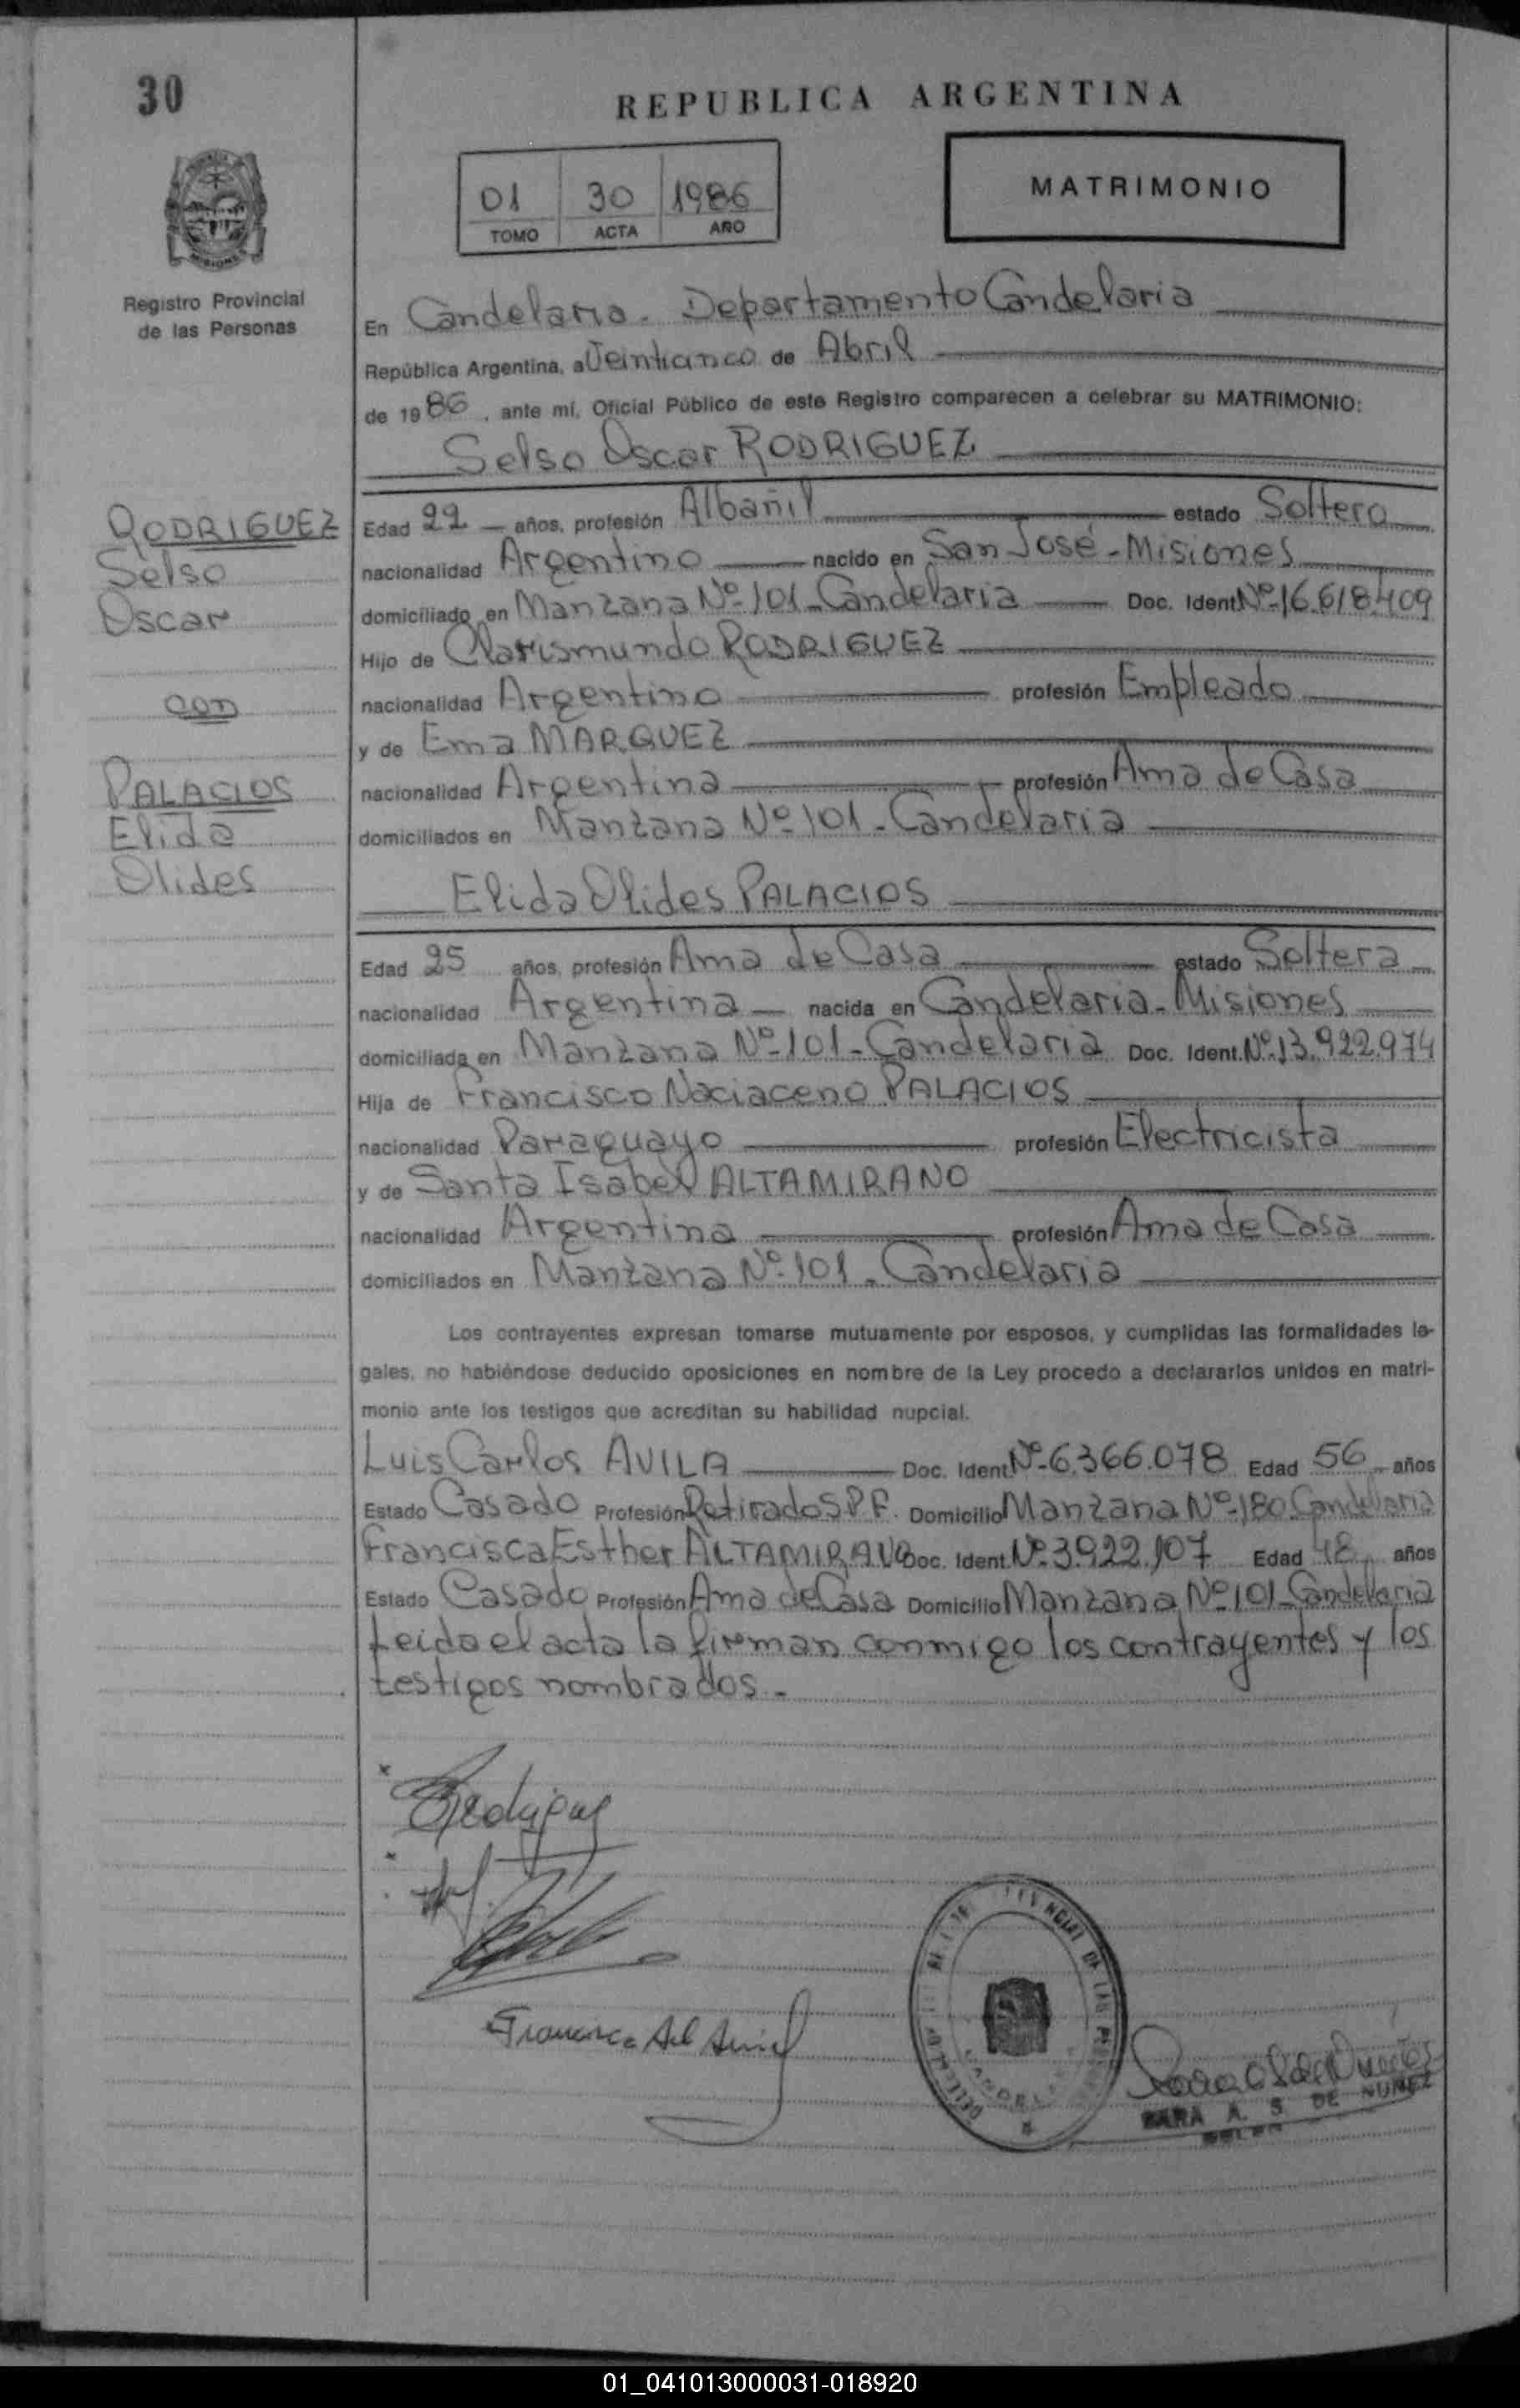 30
REPUBLICA ARGENTINA
01 30 1986
TOMO ACTA AÑO
MATRIMONIO
MISIONES
Registro Provincial
de las Personas
En Candelaria. Departamento Candelaria
República Argentina, a Veinticinco de Abril
de 1986, ante mí, Oficial Público de este Registro comparecen a celebrar su MATRIMONIO:
Selso Oscar RODRIGUEZ
RODRIGUEZ
Selso
Oscar
con
PALACIOS
Elida
Olides
Edad 22 años, profesión Albañil estado Soltero
nacionalidad Argentino nacido en San José - Misiones
domiciliado en Manzana Nº 101 - Candelaria Doc. Ident. Nº 16.618.409
Hijo de Clarismundo RODRIGUEZ
nacionalidad Argentino profesión Empleado
y de Ema MARQUEZ
nacionalidad Argentina profesión Ama de Casa
domiciliados en Manzana Nº 101 - Candelaria
Elida Olides PALACIOS
Edad 25 años, profesión Ama de Casa estado Soltera
nacionalidad Argentina nacida en Candelaria - Misiones
domiciliada en Manzana Nº 101 - Candelaria Doc. Ident. Nº 13.922.974
Hija de Francisco Naciaceno PALACIOS
nacionalidad Paraguayo profesión Electricista
y de Santa Isabel ALTAMIRANO
nacionalidad Argentina profesión Ama de Casa
domiciliados en Manzana Nº 101 - Candelaria
Los contrayentes expresan tomarse mutuamente por esposos, y cumplidas las formalidades le-
gales, no habiéndose deducido oposiciones en nombre de la Ley procedo a declararlos unidos en matri-
monio ante los testigos que acreditan su habilidad nupcial.
Luis Carlos AVILA Doc. Ident. Nº 6.366.078 Edad 56 años
Estado Casado Profesión Retirado S.P.F. Domicilio Manzana Nº 180 Candelaria
Francisca Esther ALTAMIRANO Doc. Ident. Nº 3.922.107 Edad 48 años
Estado Casado Profesión Ama de Casa Domicilio Manzana Nº 101 - Candelaria
Leida el acta la firman conmigo los contrayentes y los
testigos nombrados.-
Rodriguez
SARA A. S DE NUÑEZ
01_041013000031-018920